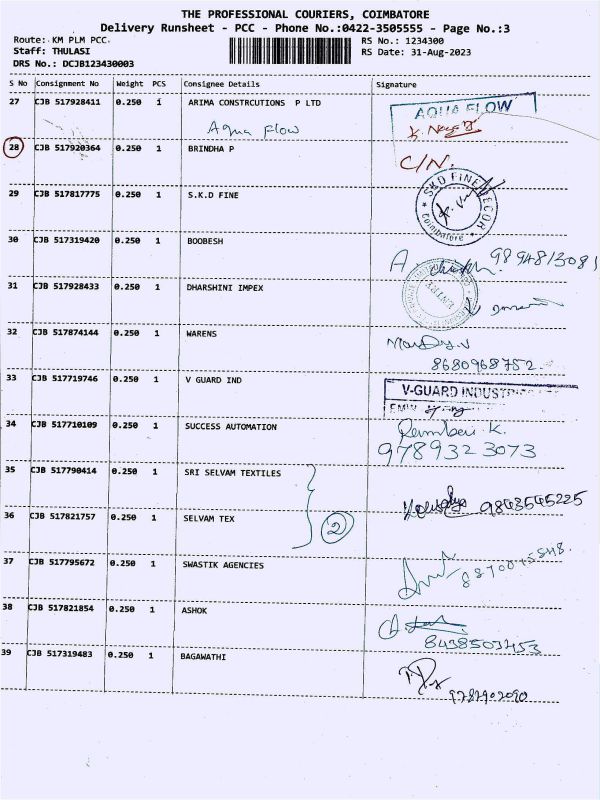 THE PROFESSIONAL COURIERS, COIMBATORE
Delivery Runsheet - PCC - Phone No.:0422-3505555 - Page No.:3
Route: KM PLM PCC.
Staff: THULASI
DRS No.: DCJB123430003
RS No.: 1234300
RS Date: 31-Aug-2023
S No Consignment No Weight PCS Consignee Details Signature
27 CJB 517928411 0.250 1 ARIMA CONSTRCUTIONS P LTD AQUA FLOW
Aqua Flow
28 CJB 517920364 0.250 1 BRINDHA P C/N.
29 CJB 517817775 0.250 1 S.K.D FINE SKD FINE DECOR Coimbatore
30 CJB 517319420 0.250 1 BOOBESH 9894813081
31 CJB 517928433 0.250 1 DHARSHINI IMPEX
32 CJB 517874144 0.250 1 WARENS
8680968752
33 CJB 517719746 0.250 1 V GUARD IND V-GUARD INDUST
34 CJB 517710109 0.250 1 SUCCESS AUTOMATION
9789323073
35 CJB 517790414 0.250 1 SRI SELVAM TEXTILES
2 9843545225
36 CJB 517821757 0.250 1 SELVAM TEX
37 CJB 517795672 0.250 1 SWASTIK AGENCIES
38 CJB 517821854 0.250 1 ASHOK
8438503453
39 CJB 517319483 0.250 1 BAGAWATHI